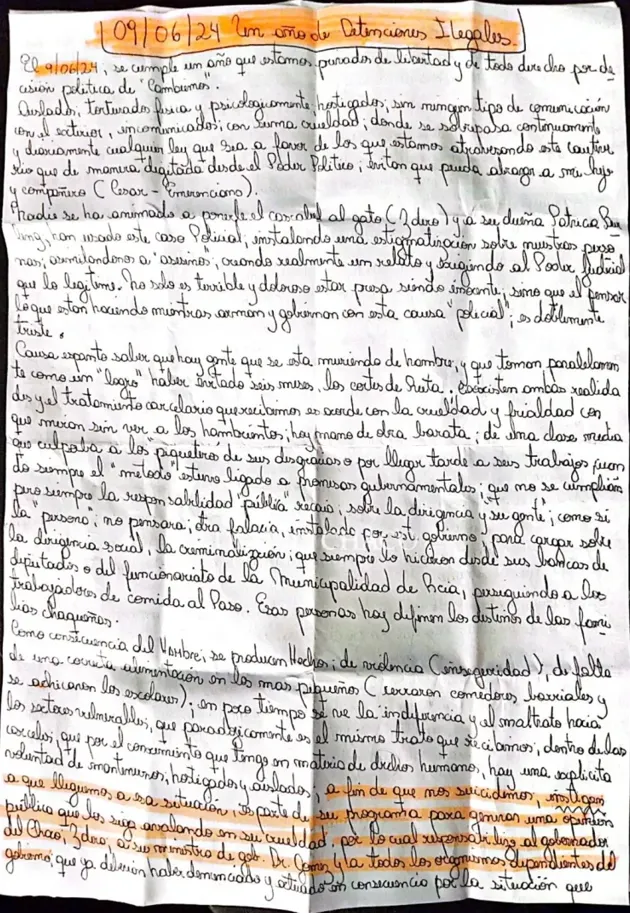 09/06/24 Un año de Detenciones Ilegales.
El 9/06/24, se cumple un año que estamos privados de libertad y de todo derecho por de
cisión política de "Cambiemos".
Aislados, torturados física y psicológicamente, hostigados, sin ningún tipo de comunicación
con el exterior, incomunicados; con suma crueldad; donde se sobrepasa continuamente
y diariamente cualquier ley que sea a favor de los que estamos atravesando este cautive
rio que de manera digitada desde el Poder Político; evitan que pueda abrazar a mi hijo
y compañero (Cesar - Emerenciano).
Nadie se ha animado a ponerle el cascabel al gato (Zdero) y a su dueña Patricia Bu
llring, han usado este caso Policial; instalando una estigmatización sobre nuestras perso
nas; asimilandonos a "asesinos; creando realmente un relato y exigiendo al Poder Judicial
que lo legitime. No solo es terrible y doloroso estar presa siendo inocente; sino que el pensar
lo que estan haciendo mientras arman y gobiernan con esta causa "policial"; es doblemente
triste.
Causa espanto saber que hay gente que se esta muriendo de hambre, y que toman paralelamen
te como un "logro" haber evitado seis meses, los cortes de Ruta. Coexisten ambas realida
des y el tratamiento carcelario que recibimos es acorde con la crueldad y frialdad con
que miran sin ver a los hambrientos; hoy mano de obra barata; de una clase media
que culpaba a los "piqueteros de sus desgracias o por llegar tarde a sus trabajos cuan
do siempre el "metodo" estuvo ligado a promesas gubernamentales; que no se cumplian
pero siempre la responsabilidad "pública" recaia; sobre la dirigencia y su gente"; como si
la "persona"; no pensara; otra falacia, instalada por este gobierno; para cargar sobre
la dirigencia social, la criminalización; que siempre lo hicieron desde sus bancas de
diputados o del funcionariato de la Municipalidad de Rcia; persiguiendo a los
trabajadores de comida al Paso. Esas personas hoy definen los destinos de las fami
lias chaqueñas.
Como consecuencia del HAMBRE; se producen Hechos; de violencia (inseguridad), de falta
de una correcta alimentación en los mas pequeños (cerraron comedores barriales y
se achicaron los escolares); en poco tiempo se ve la indiferencia y el maltrato hacia
los sectores vulnerables, que paradojicamente es el mismo trato que recibimos; dentro de las
carceles; que por el conocimiento que tengo en materia de drchos humanos, hay una explicita
voluntad de mantenernos, hostigados y aislados; a fin de que nos suicidemos, instigan
a que lleguemos a esa situación, es parte de su programa para generar una opinión
pública que los siga avalando en su crueldad, por lo cual responsabilizo al gobernador
del Chaco, Zdero, a su ministra de gob. Dr. Gomez y a todos los organismos dependientes del
gobierno; que ya debieron haber denunciado y actuado en consecuencia por la situación que